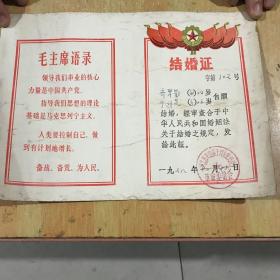 毛主席语录
领导我们事业的核心
力量是中国共产党。
指导我们思想的理论
基础是马克思列宁主义。
人类要控制自己，做
到有计划地增长。
备战、备荒、为人民。
结婚证
字第
号
自愿
结婚，经审查合于中
华人民共和国婚姻法
关于结婚之规定，发
给此证。
一九 年 月 日